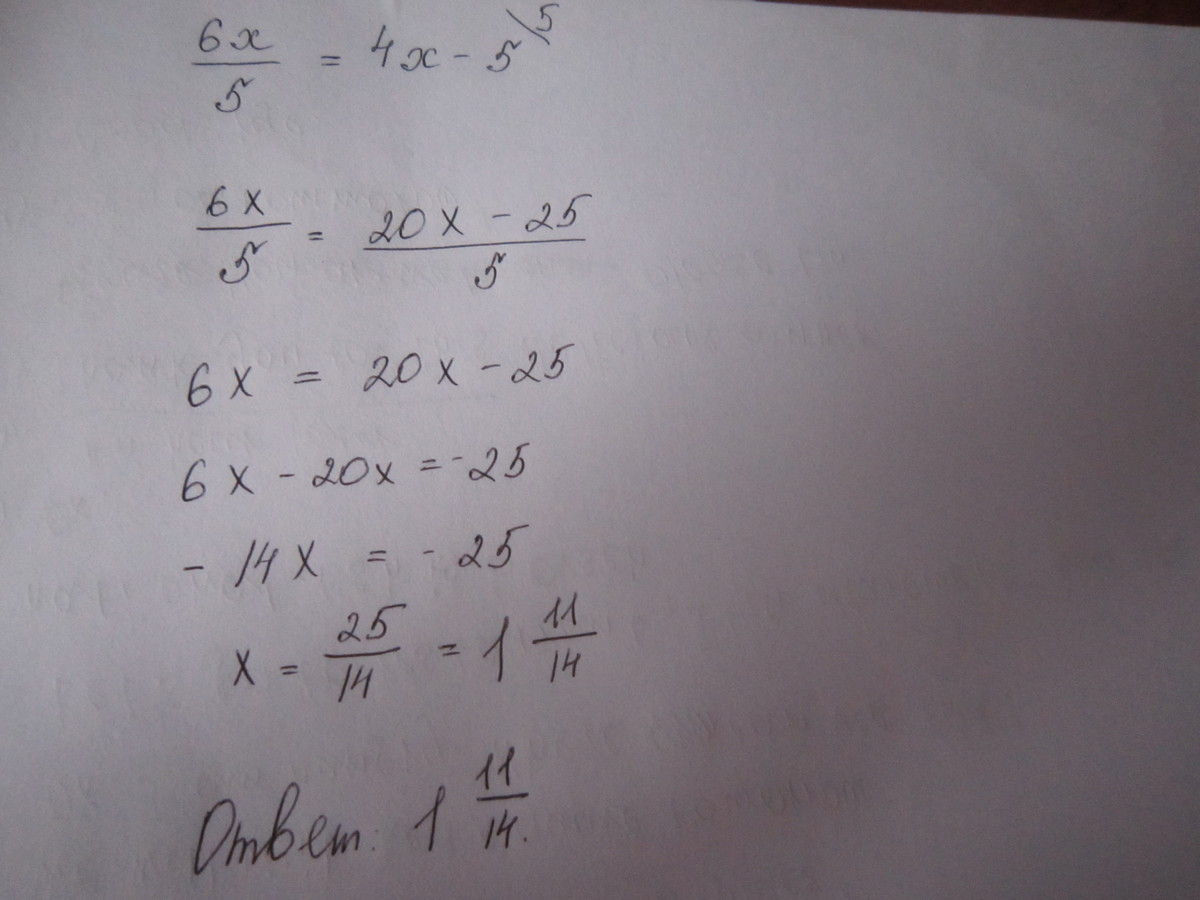 6x/5 = 4x - 5 \5
6x/5 = (20x - 25)/5
6x = 20x - 25
6x - 20x = -25
- 14x = - 25
x = 25/14 = 1 11/14
Ответ: 1 11/14.